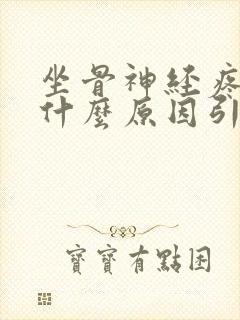 坐骨神経疼
什麼原因引
寶寶有點困